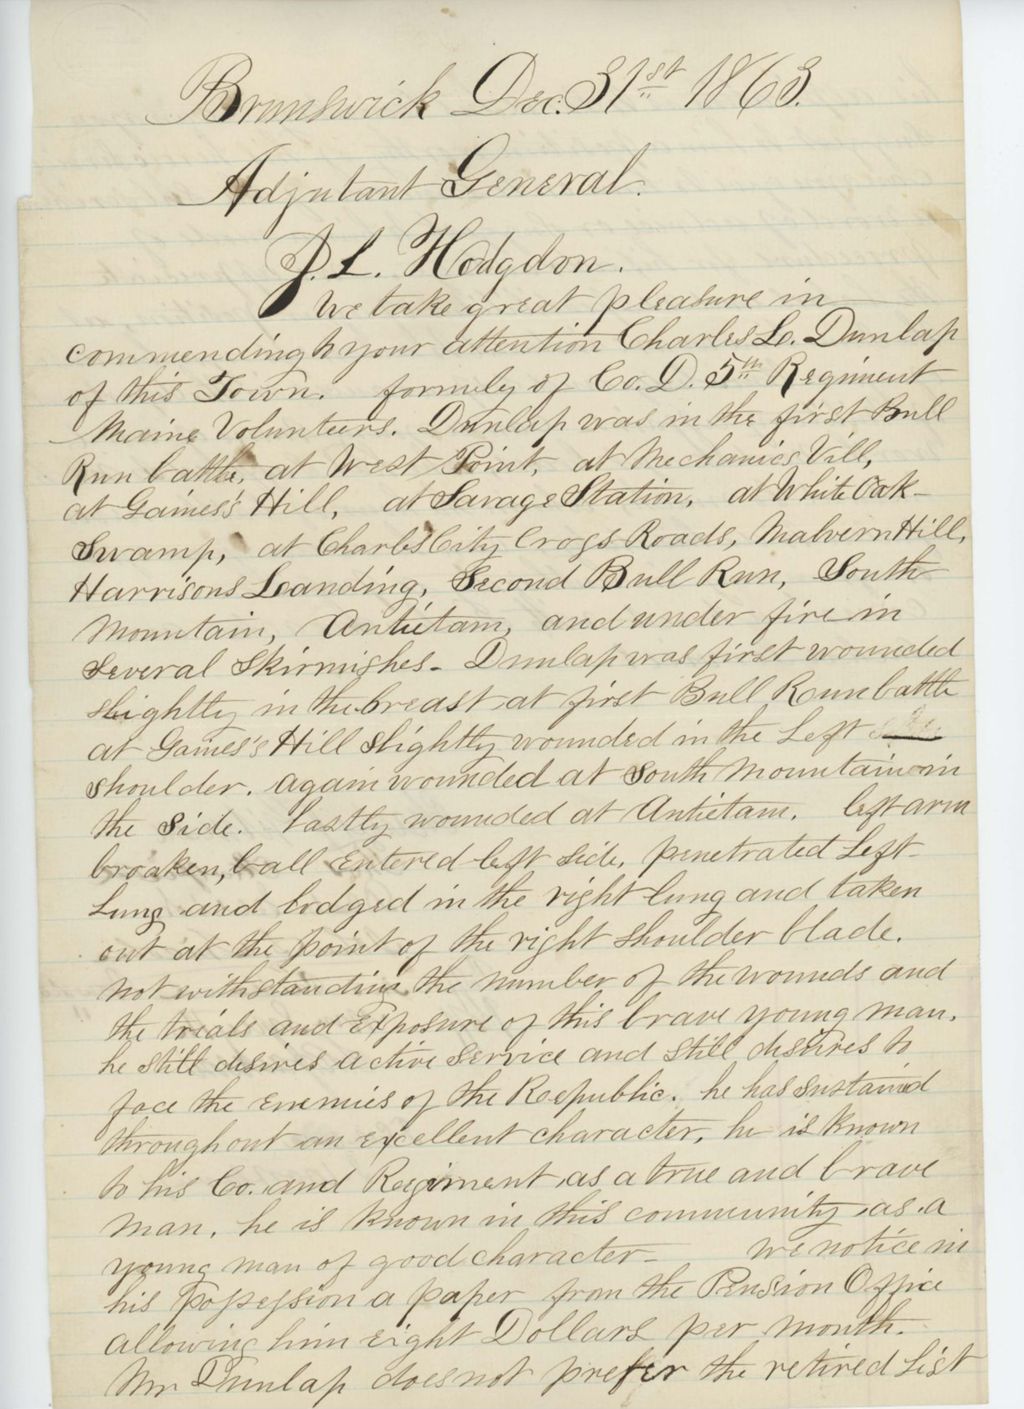 Brunswick Dec. 31st 1863.
Adjutant General.
J. L. Hodgdon.
We take great pleasure in
commending to your attention Charles L. Dunlap
of this Town. formily of Co. D. 5th Regiment
Maine Volunteers. Dunlap was in the first Bull
Run battle, at West Point, at Mechanics Vill,
at Gaines's Hill, at Savage Station, at White Oak
Swamp, at Charles City Cross Roads, Malvern Hill,
Harrisons Leanding, Second Bull Run, South
Mountain, Antietam, and under fire in
several skirmishes - Dunlap was first wounded
slightly in the breast at first Bull Run battle
at Gaines's Hill slightly wounded in the Left
shoulder. again wounded at South Mountain in
the side. lastly wounded at Antietam. left arm
broaken, ball entered left side, penetrated Left
Lung and lodged in the right lung and taken
out at the point of the right shoulder blade.
not withstanding the number of the wounds and
the trials and exposure of this brave young man.
he still desires active service and still desires to
face the enemies of the Republic. he has sustained
throughout an excellent character, he is known
to his Co. and Regiment as a true and brave
man. he is known in this community as a
young man of good character - we notice in
his possession a paper from the Pension Office
allowing him eight Dollars per month.
Mr Dunlap does not prefer the retired List